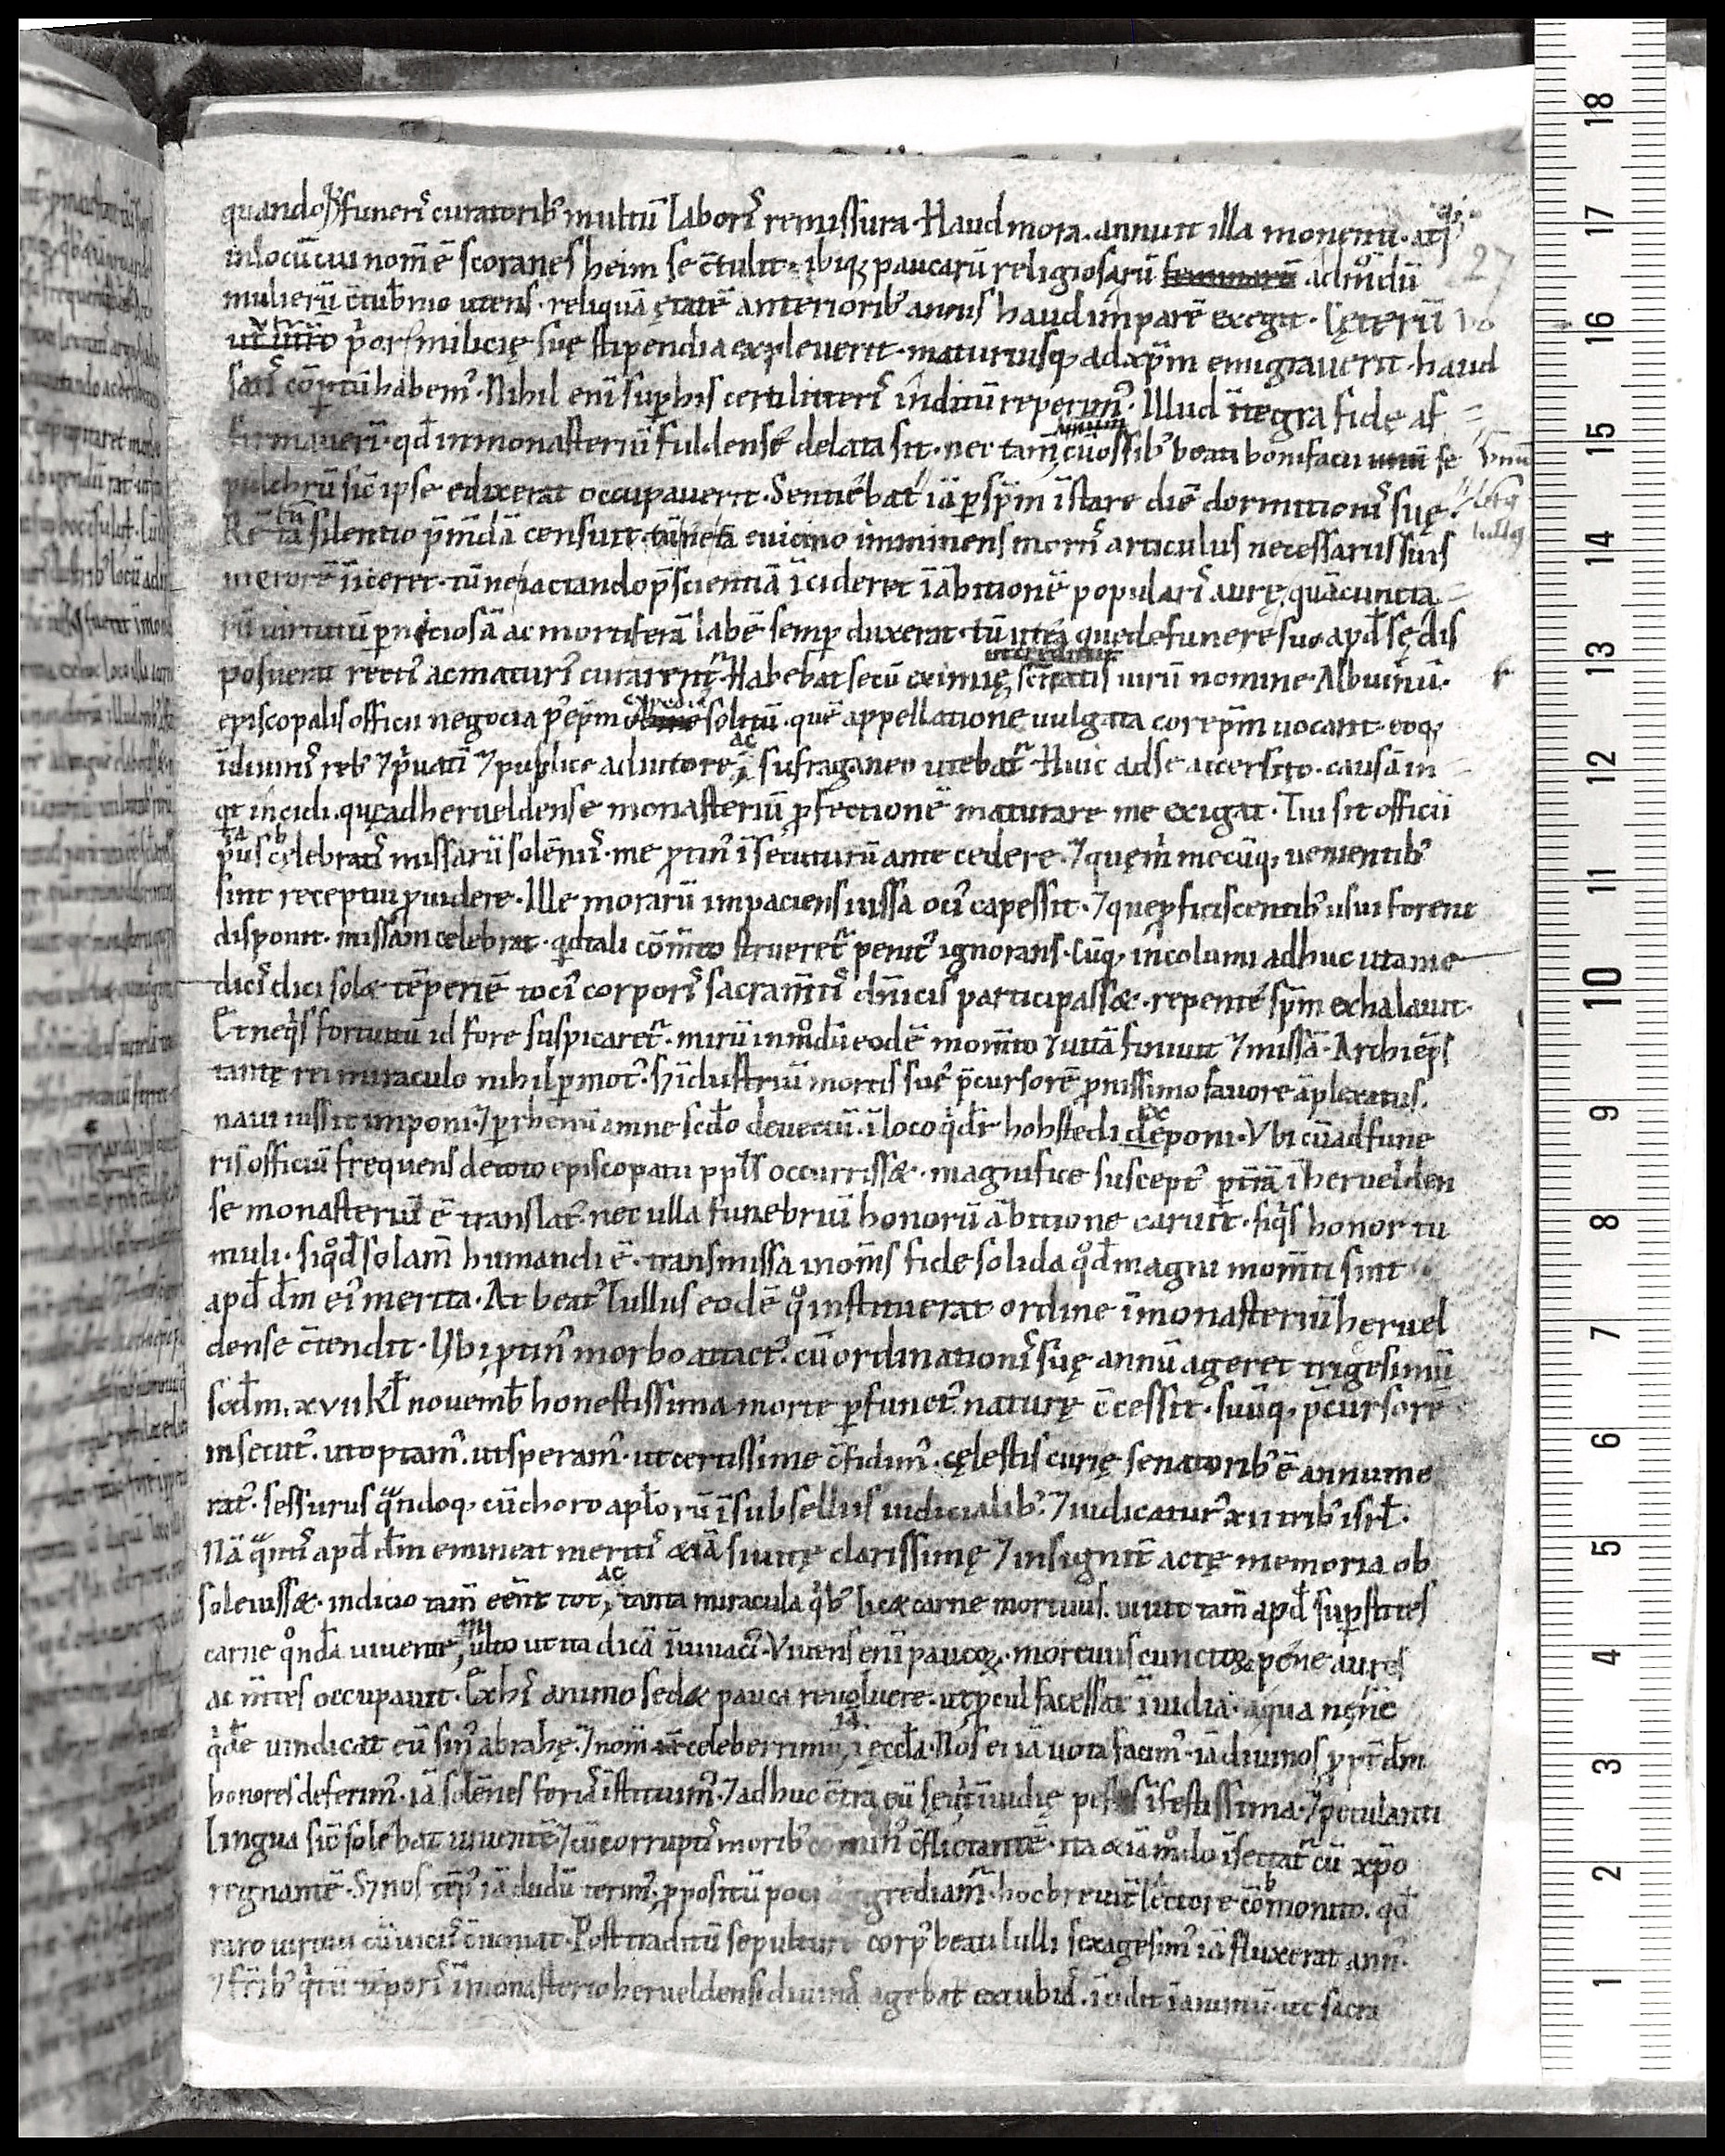 quandoq; funerꝭ curatorib' multū laborꝭ remissura. Haud mora. annuit illa monenti. atq;
in locū cui nom̄ ē scoranesheim se c̄tulit. ibiq; paucarū religiosarū admodū
mulierū c̄tub̄nio utens. reliquā ętatē anteriorib' annis haud imparē exegit. Cęterū
p'or milicię suę stipendia expleverit. maturiusq; ad xp̄m emigraverit. haud
satis cōptū habem'. Nihil enī sup̄ his certi litterꝭ inditū reperim'. Illud ītegra fide af
firmaverī. qd̄ in monasteriū fuldense delata sit. nec tam̄ cū ossib' beati bonifacii unū se
pulchrū sic ipse edixerat occupaverit. Sentiebat iā p sp̄m īstare diē dormitionꝭ suę.
Rē tā silentio p̄m̄dā censuit. tū ne tā e uicino imminens mortꝭ articulus necessariis suis
merorē īiceret. tū ne iactando p̄scientiā īcideret īābitionē popularꝭ aurę, quā cuncta
rū uirtutū pniciosā ac mortiferā labē semp duxerat. tū ut ea que de funere suo apd̄ se dis
posuerat recti' ac maturi' curarent'. Habebat secū eximię sc̄itatis uirū nomine Albuinū.
episcopalis officii negocia p' ep̄m solitū. quē appellatione uulgata corep̄m uocant. eoq;
ī diuinꝭ reb' ⁊ p'uatꝭ ⁊ publicꝭ adiutore ac sufraganeo utebat'. Huic ad se accersito. causā in
qt incidi. quę ad herueldense monasteriū pfectionē maturare me exigat. Tui sit officii
celebratꝭ missarū solēniꝭ. me ptin' īsecuturū ante cedere. ⁊ mecūq; uenientib'
sint receptui puidere. Ille morarū impaciens iussa oci' capessit. ⁊ que pficiscentib' usui forent
disponit. missam celebrat. qd tali cōm̄to strueret' penit' ignorans. Cūq; incolumi adhuc uta me
diciꝭ dici solæ tēperiē toci' corporꝭ sacram̄tꝭ dn̄icis participassæ. repente sp̄m exhalauit.
Et neq's fortuitū id fore suspicaret'. mirū in modū eodē mom̄to ⁊ uitā finiuit ⁊ missā. Archiep̄s
tantę rei miraculo nihil pmot'. īdustriū mortis suę p̄cursorē pnissimo fauore āplexatus.
naui iussit imponi. ⁊ p rhenū amne sc̄do deuectū. ī loco q' dr̄ hohstedi exponi. Vbi cū ad fune
ris officiū frequens de toto episcopatu ppl̄s occurrissæ. magnifice suscept' ī heruelden
se monasteriū ē translat'. nec ulla funebriū honorū ābitione caruit. siq's honor tu
muli. siqd̄ solam̄ humandi ē. transmissa in om̄s fide solida qd̄ magni mom̄ti sint
apd̄ dm̄ ei' merita. At beat' lullus eodē q̊ instituerat ordine ī monasteriū heruel
dense c̄tendit. Vbi ptin' morbo attact'. cū ordinationꝭ suę annū ageret trigesimū
scdm̄. xvii kl̄ nouemb̄ honestissima morte pfunct' naturę c̄cessit. suūq; p̄cursorē
insecut'. ut optam'. ut speram'. ut certissime c̄fidim'. cęlestis curię senatorib' ē annume
rat'. sessurus q̄ndoq; cū choro apl̄orū ī subselliis iudicialib'. ⁊ iudicatur' xii trib' isrl̄.
Nā q̄ntꝭ apd̄ dm̄ emineat meritꝭ æiā si uitę clarissimę ⁊ insignit̄ actę memoria ob
soleuissæ. indicio tam̄ eēnt tot ac tanta miracula q'b' licæ carne mortuus. uiuit tam̄ apd̄ supstites
carne q̊ndā uiuente, multo ut ita dicā ī uiuaci'. Viuens enī paucoꝝ. mortuus cunctoꝝ pene aures
ac m̄tes occupauit. Ex hꝭ animo sedæ pauca reuoluere. ut pcul facessat īuidia. a qua nēne
q'dē uindicat eū sin' abrahę. ⁊ nom̄ celeberrimū ī ęccl̄a. Nos ei iā uota facim'. iā diuinos ppt̄ dm̄
honores deferim'. iā solēnes foriꝭ īstituim'. ⁊ adhuc c̄tra eū seuit īuidię pestis īfestissima. ⁊ petulanti
lingua sic solebat uiuentē ⁊ cū corruptꝭ morib' c̄flictantē. ita æiā m̊do īsectat' cū xp̄o
regnantē. S; nos tēp' iā dudū terim'. ppositū poti' aggrediam̄. hoc breuit̄ lectore cōmonito. qd̄
raro uirtuti cū uiciꝭ c̄ueniat. Post traditū sepulture corp' beati lulli sexagesim' iā fluxerat ann'.
⁊ fr̄ib' q' tū tēporꝭ ī monasterio herueldensi diuinā agebat excubiā. īcidit ī animū. ut sacra